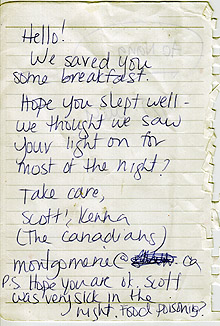 Hello!
We saved you
some breakfast.
Hope you slept well-
we thought we saw
your light on for
most of the night?
Take care,
Scott, Kenna
(The Canadians)
.ca
P.S Hope you are ok. Scott
was very sick in the
night. Food poisoning?